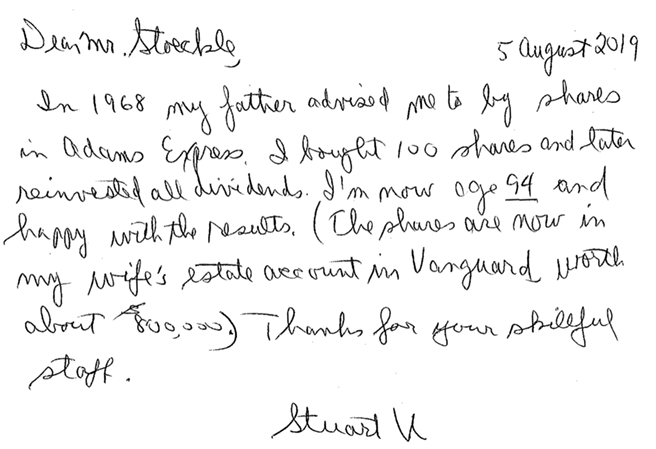 Dear Mr. Stoeckle,
5 August 2019
In 1968 my father advised me to by shares
in Adams Express. I bought 100 shares and later
reinvested all dividends. I'm now age 94 and
happy with the results. (The shares are now in
my wife's estate account in Vanguard worth
about $800,000.) Thanks for your skillful
staff.
Stuart V